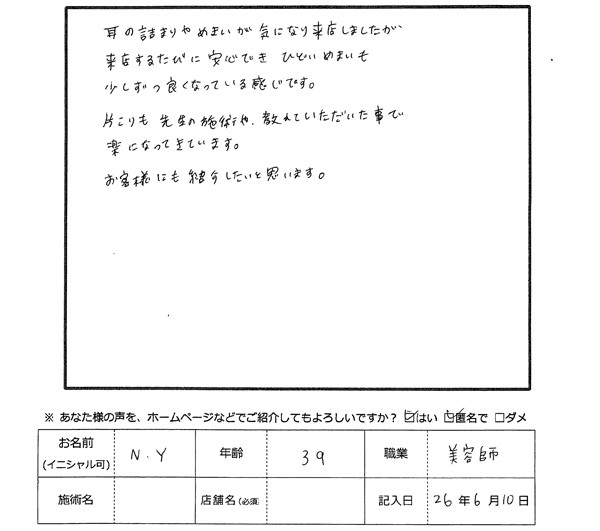 耳の詰まりやめまいが気になり来店しましたが、
来店するたびに安心でき ひどいめまいも
少しずつ良くなっている感じです。
肩こりも 先生の施術や、教えていただいた事で
楽になってきています。
お客様にも紹介したいと思います。
※ あなた様の声を、ホームページなどでご紹介してもよろしいですか? ☑はい ☑匿名で □ダメ
お名前 (イニシャル可) N.Y 年齢 39 職業 美容師
施術名 店舗名(必須) 記入日 26年6月10日